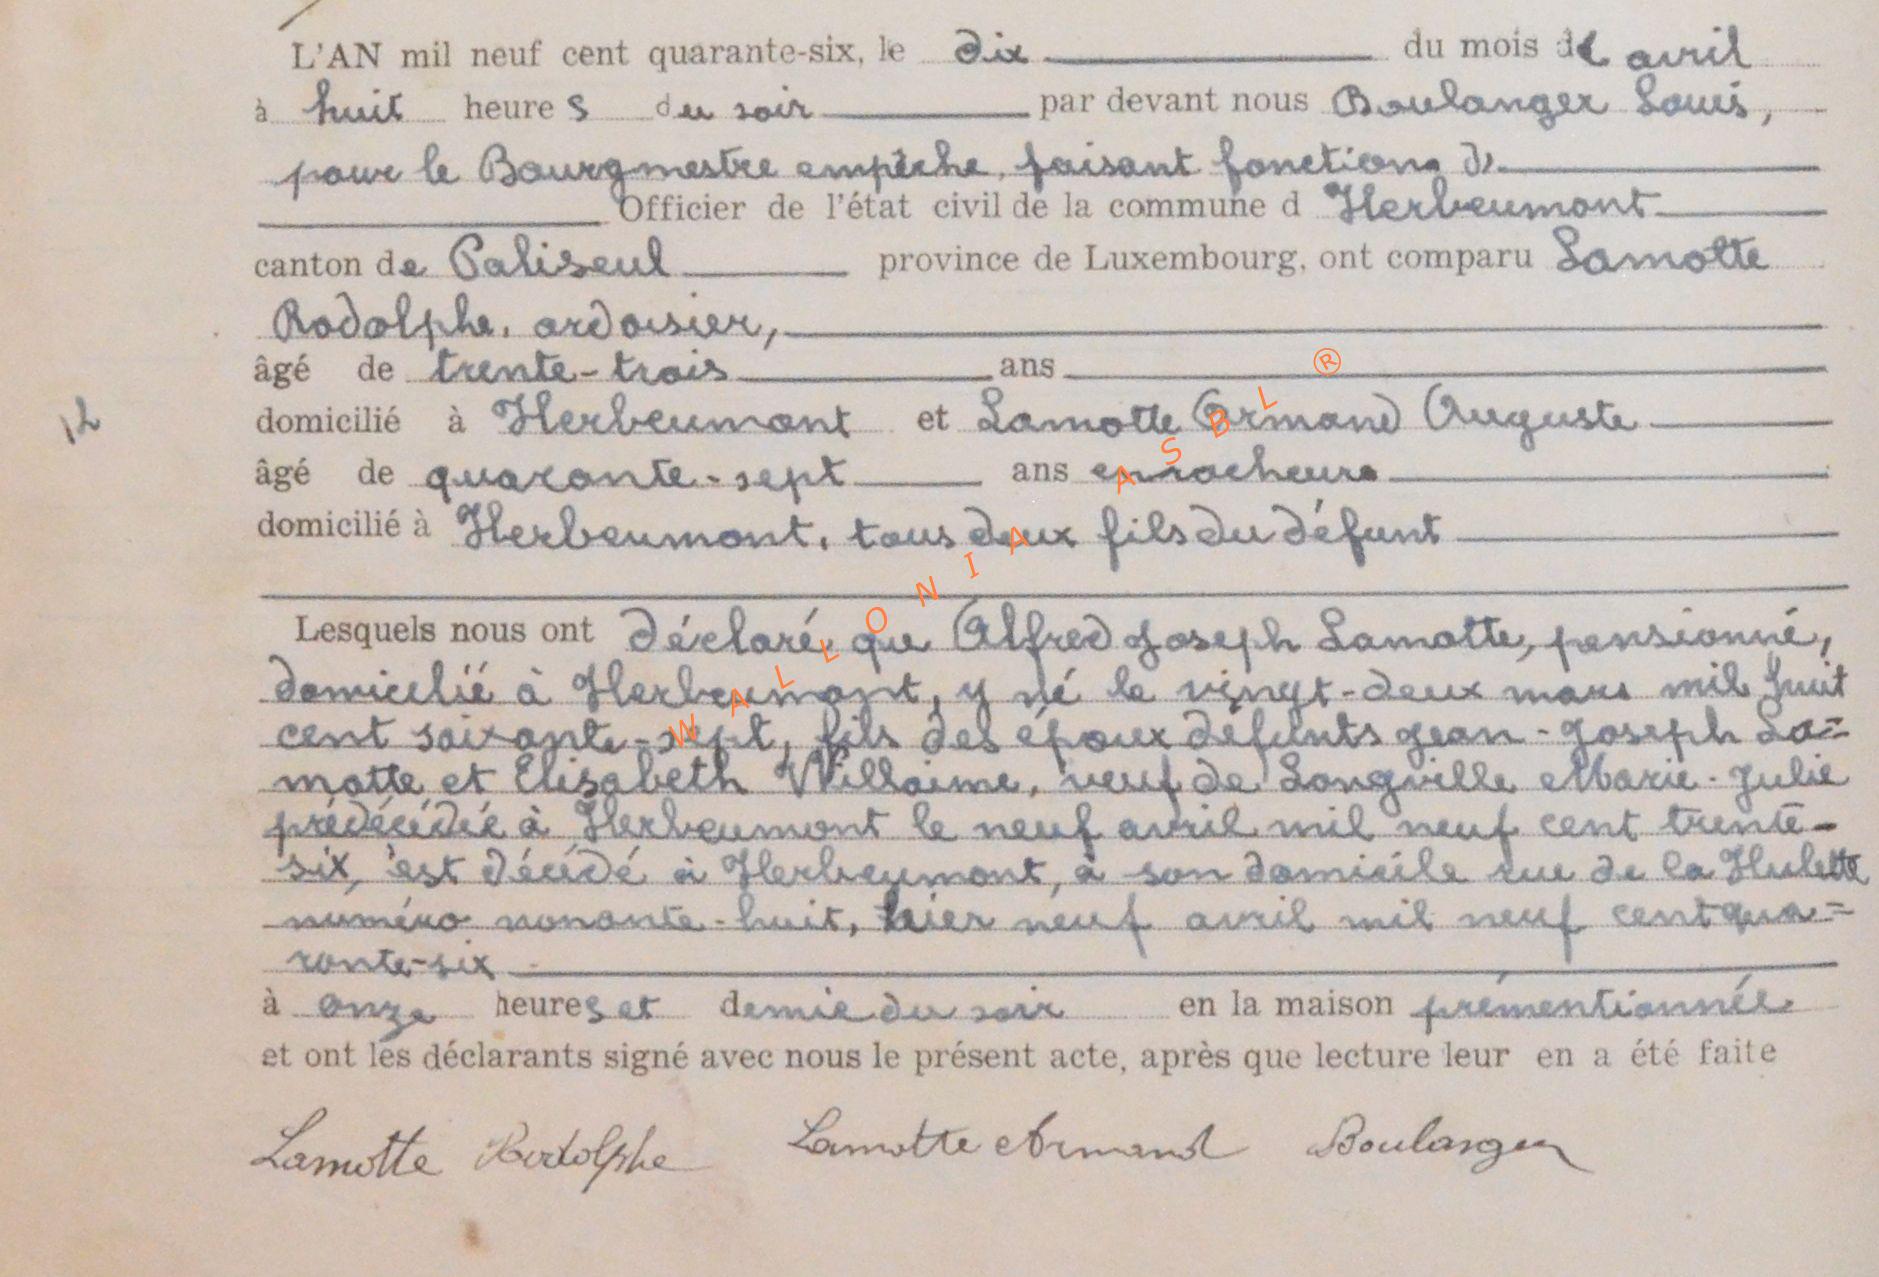 L'AN mil neuf cent quarante-six, le dix du mois de avril
à huit heures du soir par devant nous Boulanger Louis,
pour le Bourgmestre empêche, faisant fonctions d'
Officier de l'état civil de la commune d Herbeumont
canton de Paliseul province de Luxembourg, ont comparu Lamotte
Rodolphe, ardoisier,
âgé de trente-trois ans
12
domicilié à Herbeumont et Lamotte Armand Auguste
âgé de quarante-sept ans
domicilié à Herbeumont, tous deux fils du défunt
Lesquels nous ont déclaré que Alfred Joseph Lamotte, pensionné,
domicilié à Herbeumont, y né le vingt-deux mars mil huit
cent soixante-sept, fils des époux défunts Jean-Joseph La=
motte et Elisabeth Willaime, veuf de Longville Marie-Julie
prédécédée à Herbeumont le neuf avril mil neuf cent trente-
six, est décédé à Herbeumont, à son domicile rue de la Hulette
numéro nonante-huit, hier neuf avril mil neuf cent qua=
rante-six
à onze heures et demie du soir en la maison prémentionnée
et ont les déclarants signé avec nous le présent acte, après que lecture leur en a été faite
Lamotte Rodolphe Lamotte Armand Boulanger
WALLONIA ASBL ®